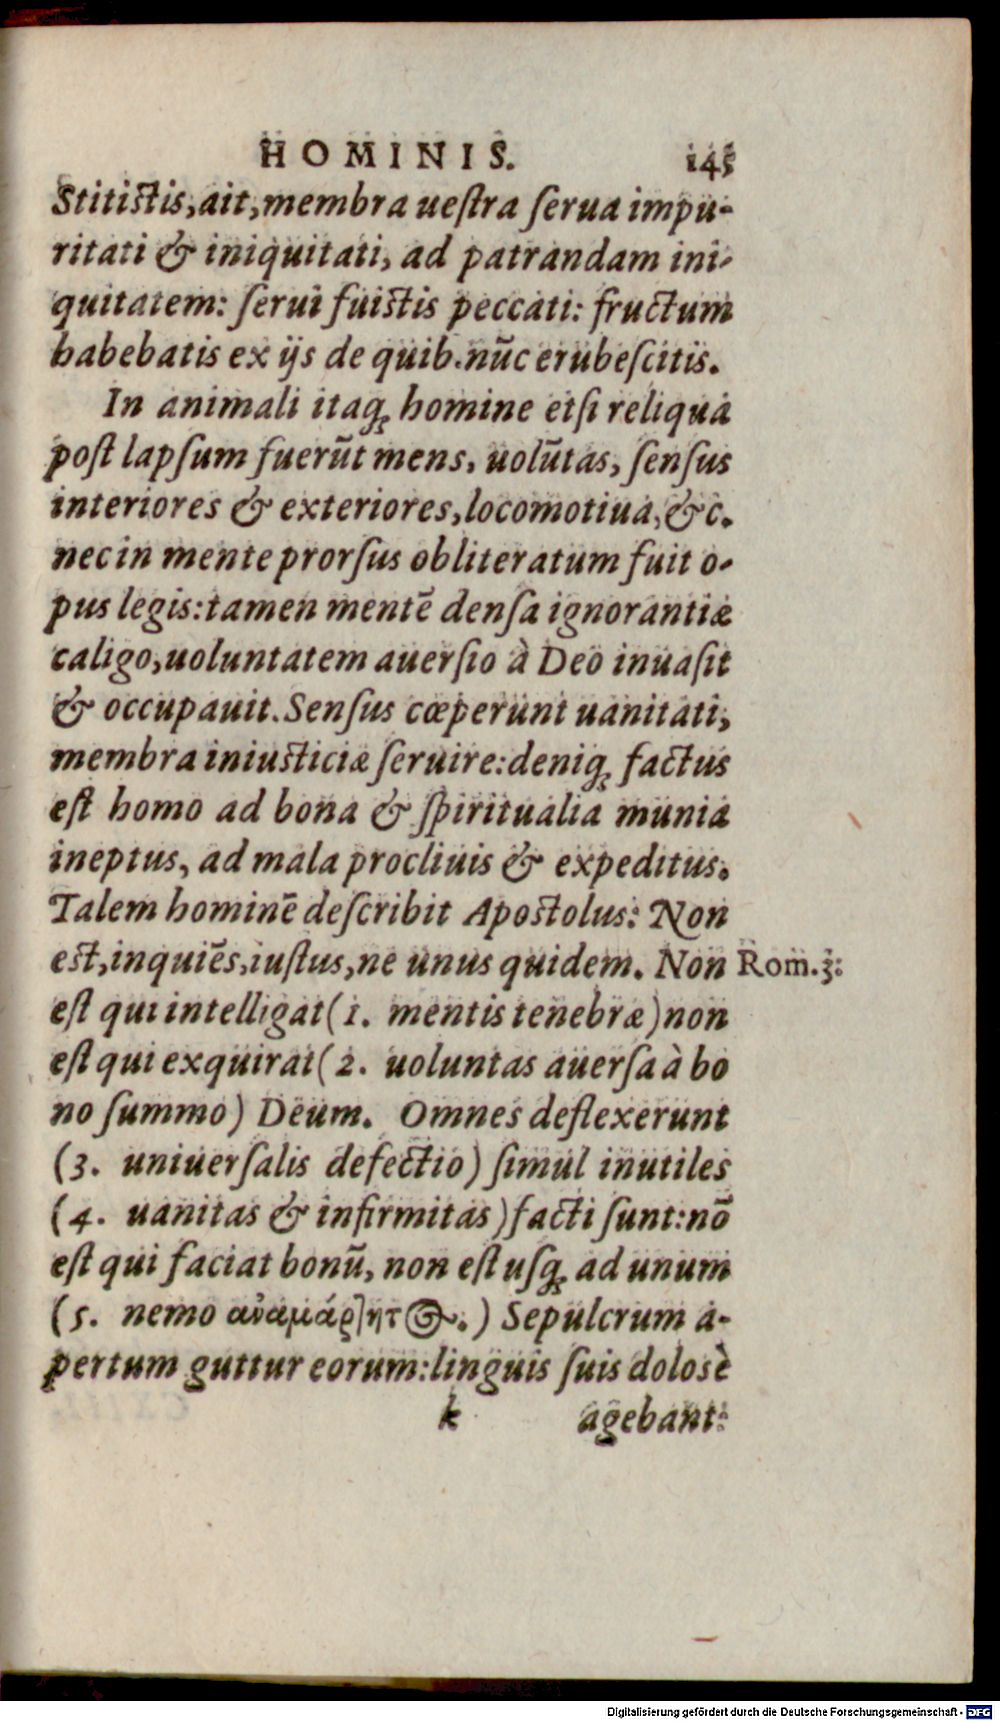 HOMINIS. 145
Stitistis, ait, membra ueſtra ſerua impu-
ritati & iniquitati, ad patrandam ini-
quitatem: ſerui fuistis peccati: fructum
habebatis ex ijs de quib. nũc erubeſcitis.
In animali itaq; homine etſi reliqua
poſt lapſum fuerũt mens, uolũtas, ſenſus
interiores & exteriores, locomotiua, &c.
nec in mente prorſus obliteratum fuit o-
pus legis: tamen mentẽ denſa ignorantiæ
caligo, uoluntatem auerſio à Deo inuaſit
& occupauit. Senſus cœperunt uanitati,
membra iniusticiæ ſeruire: deniq; factus
eſt homo ad bona & ſpiritualia munia
ineptus, ad mala procliuis & expeditus.
Talem hominẽ deſcribit Apostolus: Non
est, inquiẽs, iuſtus, ne unus quidem. Non Rom.3:
eſt qui intelligat (1. mentis tenebræ) non
eſt qui exquirat (2. uoluntas auerſa à bo
no ſummo) Deum. Omnes deflexerunt
(3. uniuerſalis defectio) ſimul inutiles
(4. uanitas & infirmitas) facti ſunt: nõ
eſt qui faciat bonũ, non eſt uſq; ad unum
(5. nemo ἀναμάρτητος.) Sepulcrum a-
pertum guttur eorum: linguis ſuis dolosè
k agebant:
Digitalisierung gefördert durch die Deutsche Forschungsgemeinschaft - DFG